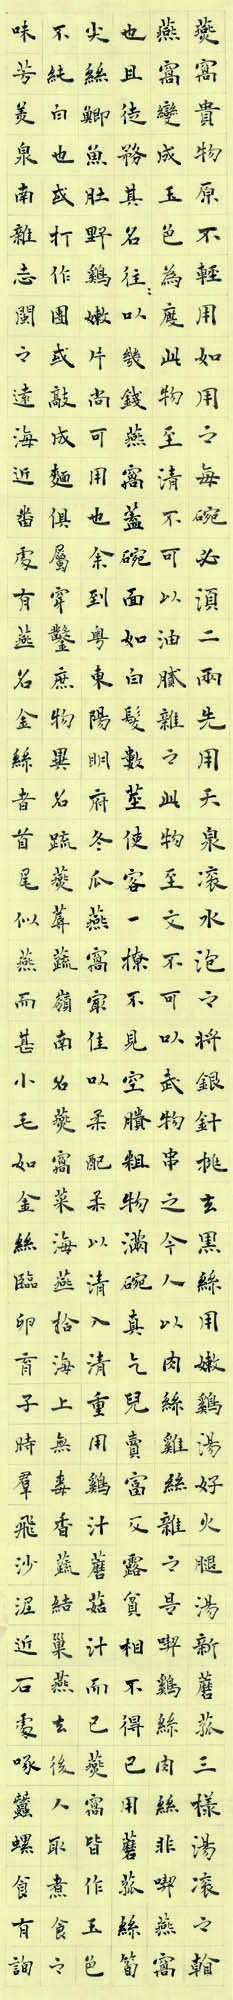 燕窩貴物原不輕用如用之每碗必須二兩先用天泉滾水泡之將銀針挑去黑絲用嫩鷄湯好火腿湯新蘑菰三樣湯滾之
燕窩變成玉色為度此物至清不可以油膩雜之此物至文不可以武物串之今人以肉絲雞絲雜之是喫鷄絲肉絲非喫燕窩
也且徒務其名往〻以幾錢燕窩蓋碗面如白髮數莖使客一撩不見空賸粗物滿碗真乞兒賣富反露貧相不得已用蘑菰絲筍
尖絲鯽魚肚野鷄嫩片尚可用也余到粵東陽明府冬瓜燕窩㝡佳以柔配柔以清入清重用鷄汁蘑菇汁而已燕窩皆作玉色
不純白也或打作團或敲成麵俱屬穿鑿庶物異名疏燕蔬嶺南名燕窩菜海燕拾海上無毒香蔬結巢燕去後人取煮食之
味芳美泉南雜志閩之遠海近畨處有燕名金絲者首尾似燕而甚小毛如金絲臨卵育子時羣飛沙泥近石處啄蠶螺食有詢